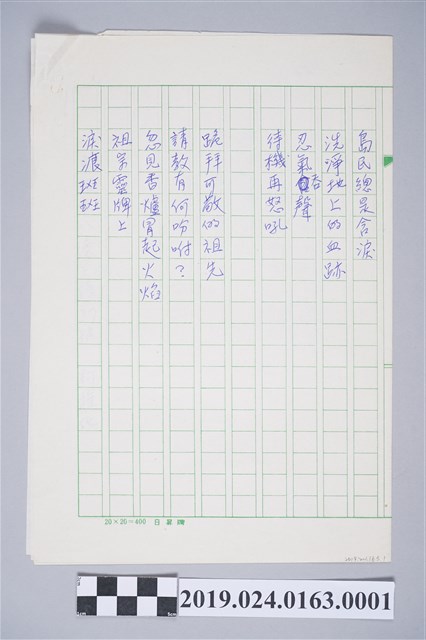 島民總是含淚
洗淨地上的血跡
忍氣吞聲
待機再怒吼
跪拜可敬的祖先
請教有何吩咐?
忽見香爐冒起火焰
祖宗靈牌上
淚痕斑斑
20×20=400
2019.024.0163.0001